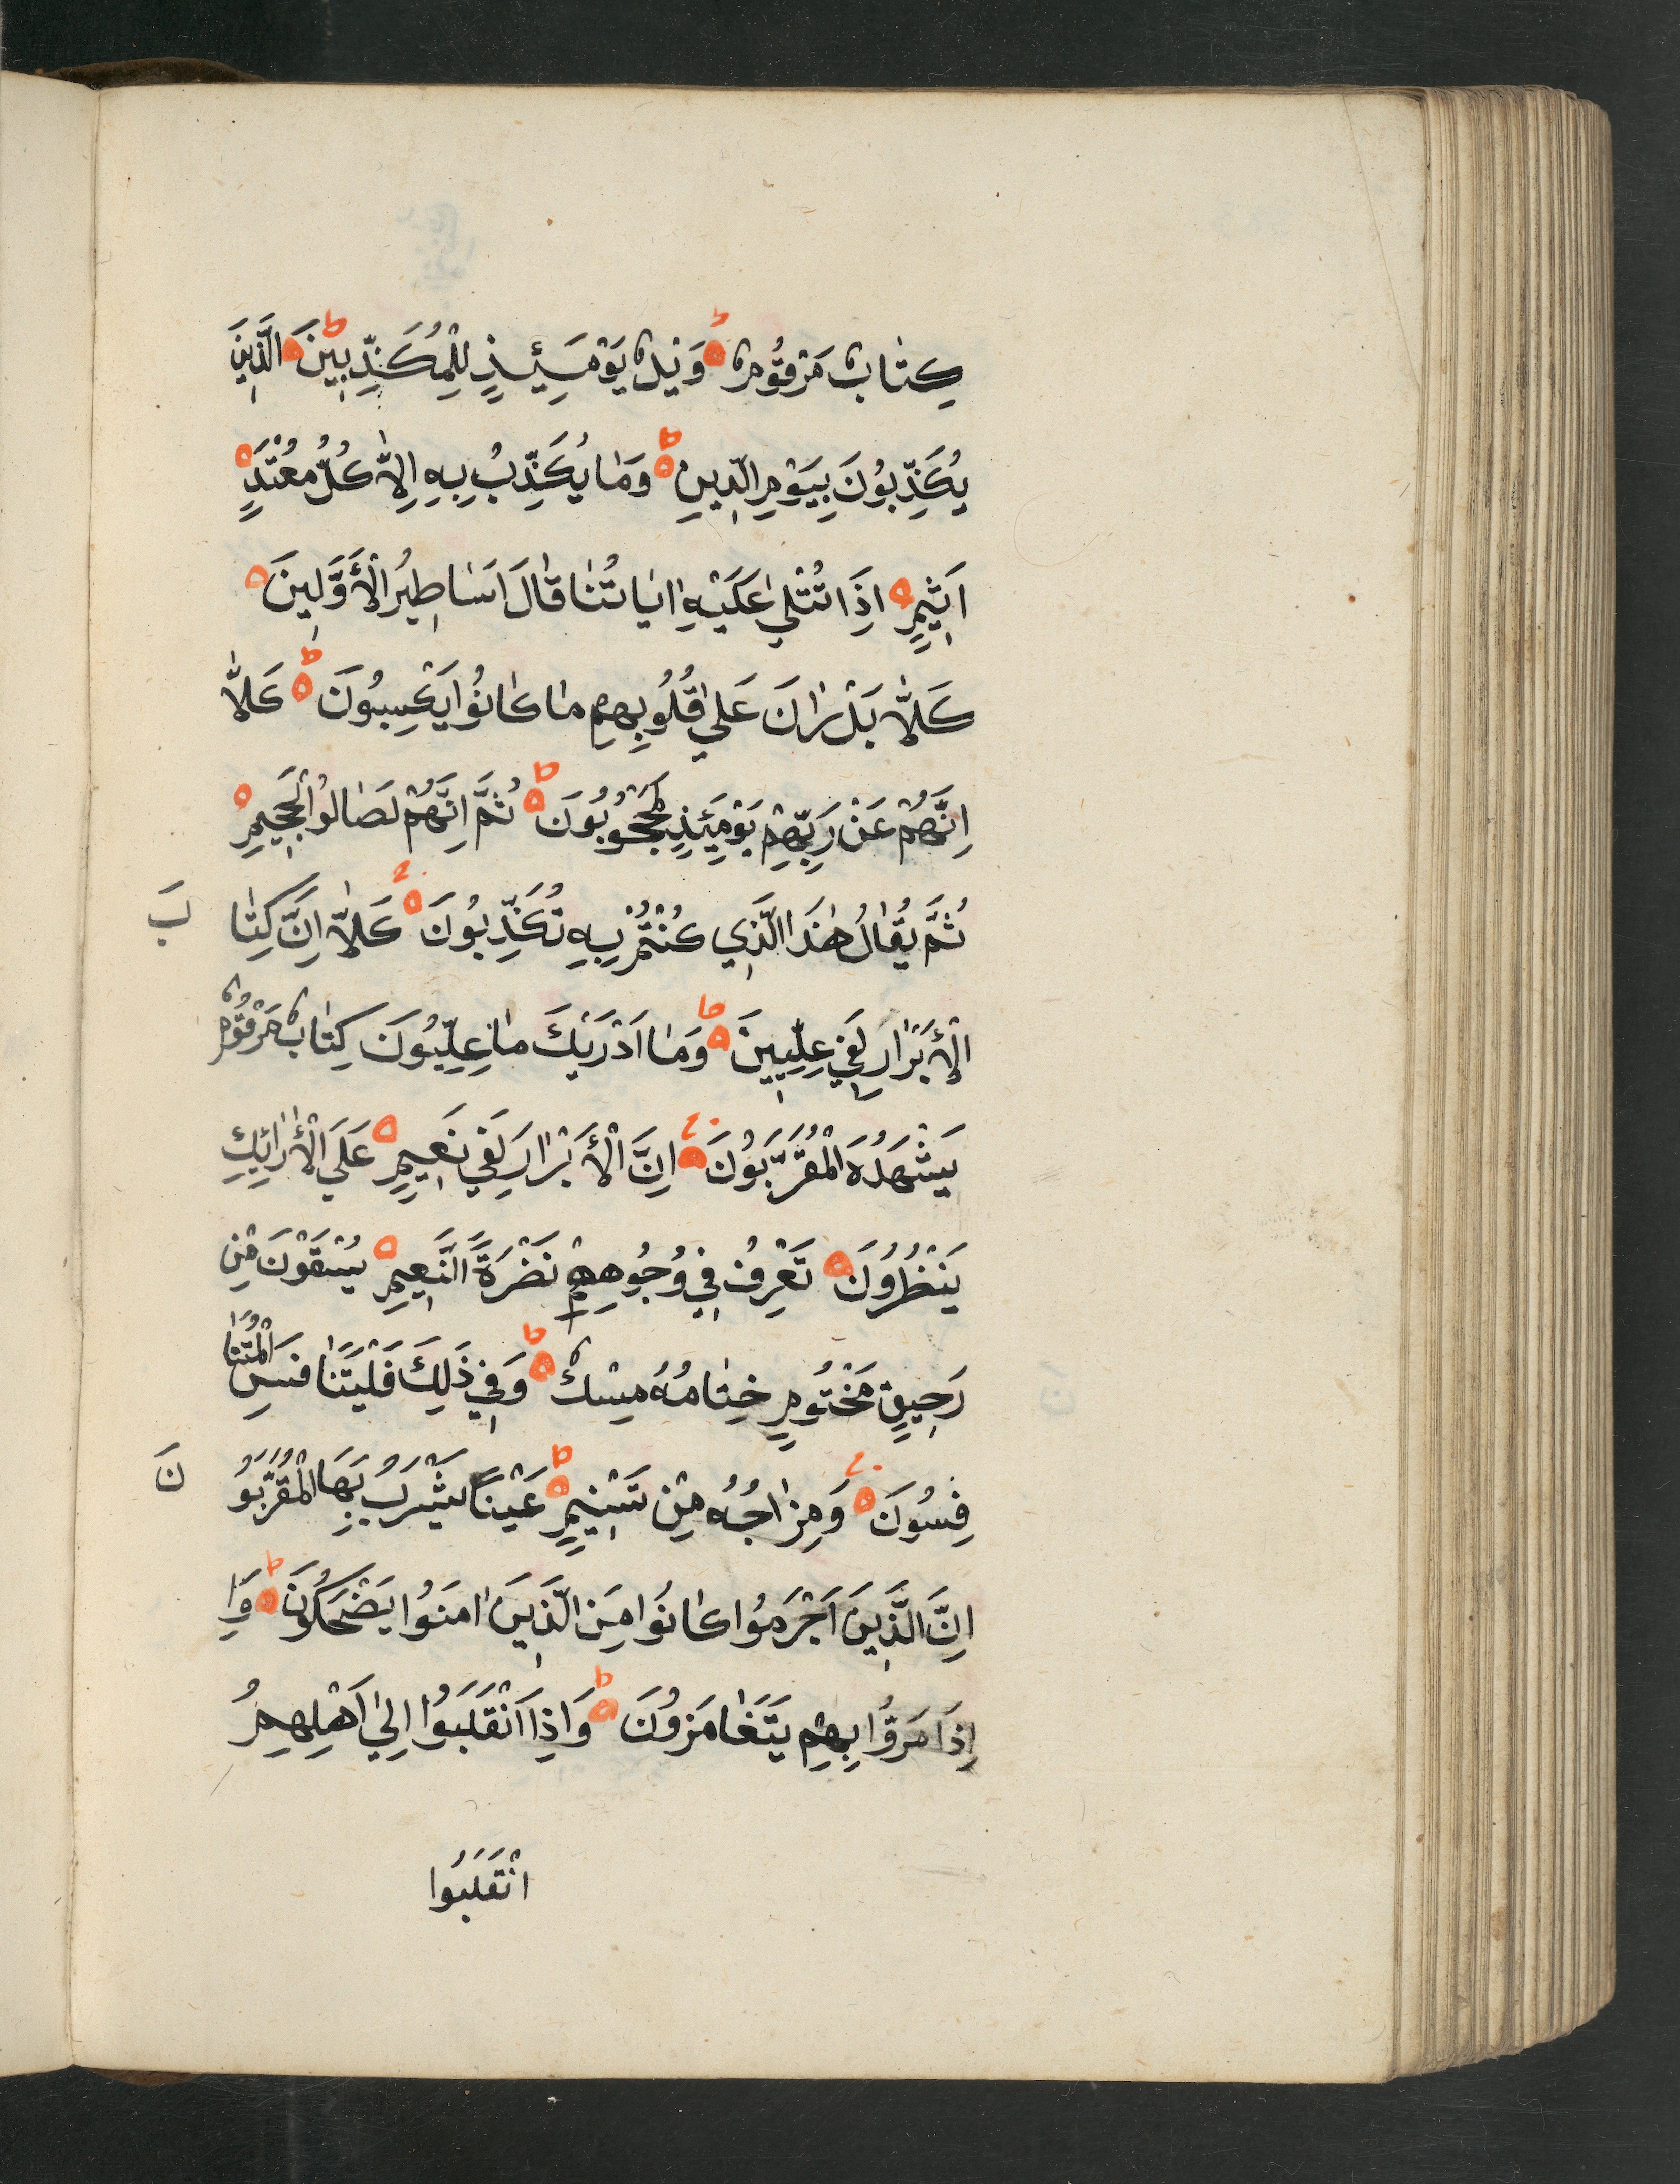 كِتَابٌ مَرْقُومٌ وَيْلٌ يَوْمَئِيذٍ لِلْمُكَذِّبِينَ الَّذِينَ
يُكَذِّبُونَ بِيَوْمِ الدِّينِ وَمَا يُكَذِّبُ بِهِ اِلَّا كُلُّ مُعْتَدٍ
اَثِيمٍ اِذَا تُتْلٰي عَلَيْهِ اٰيَاتُنَا قَالَ اَسَاطِيرُ الْأَوَّلِينَ
كَلَّا بَلْ رَانَ عَلٰي قُلُوبِهِمِ مَا كَانُوا يَكْسِبُونَ كَلَّا
اِنَّهُمْ عَنْ رَبِّهِمْ يَوْمَئِذٍ لَمَحْجُوبُونَ ثُمَّ اِنَّهُمْ لَصَالُوا الْجَحِيمِ
ثُمَّ يُقَالُ هٰذَا الَّذِي كُنْتُمْ بِهِ تُكَذِّبُونَ كَلَّا اِنَّ كِتَا بَ
الْأَبْرَارِ لَفِي عِلِّيِّينَ وَمَا اَدْرَيٰكَ مَا عِلِّيُّونَ كِتَابٌ مَرْقُومٌ
يَشْهَدُهُ الْمُقَرَّبُونَ اِنَّ الْأَبْرَارَ لَفِي نَعِيمٍ عَلَي الْأَرَائِكِ
يَنْظُرُونَ تَعْرِفُ فِي وُجُوهِهِمْ نَضْرَةَ النَّعِيمِ يُسْقَوْنَ مِنْ
رَحِيقٍ مَخْتُومٍ خِتَامُهُ مِسْكٌ وَفِي ذَلِكَ فَلْيَتَنَافَسِ الْمُتَنَا
فِسُونَ وَمِزَاجُهُ مِنْ تَسْنِيمٍ عَيْنًا يَشْرَبُ بِهَا الْمُقَرَّبُو نَ
اِنَّ الَّذِينَ اَجْرَمُوا كَانُوا مِنَ الَّذِينَ اٰمَنُوا يَضْحَكُونَ وَاِ
اِذَا مَرُّوا بِهِمْ يَتَغَامَزُونَ وَاِذَا انْقَلَبُوا اِلٰي اَهْلِهِمُ
انْقَلَبُوا